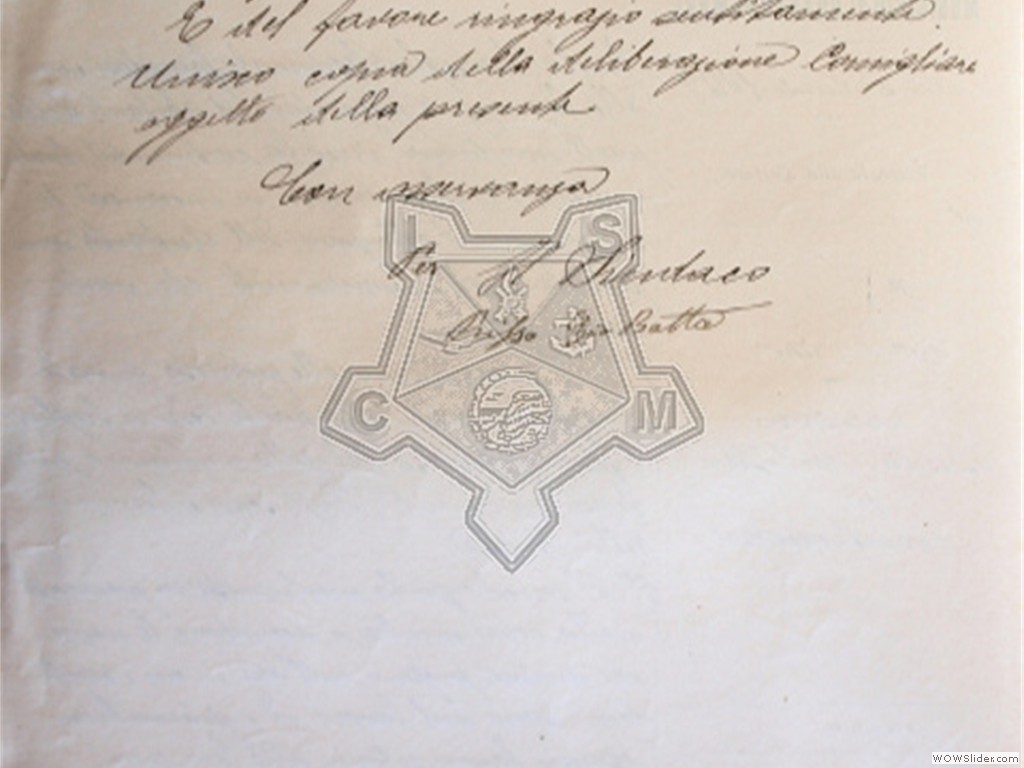 E del favore ringrazio sentitamente.
Unisco copia della deliberazione Consigliare
oggetto della presente
Con osservanza
Per Il Sindaco
Gio Batta
I S
C M
WOWSlider.com